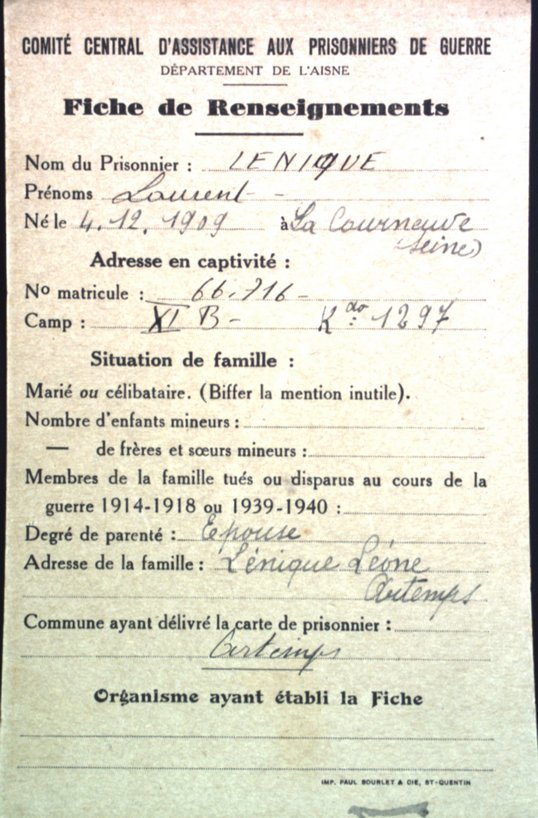 COMITÉ CENTRAL D'ASSISTANCE AUX PRISONNIERS DE GUERRE
DÉPARTEMENT DE L'AISNE
Fiche de Renseignements
Nom du Prisonnier : LENIQUE
Prénoms Laurent -
Né le 4.12.1909 à La Courneuve
(Seine)
Adresse en captivité :
No matricule : 66.716 -
Camp : XI B - Kdo 1297
Situation de famille :
Marié ou célibataire. (Biffer la mention inutile).
Nombre d'enfants mineurs :
— de frères et sœurs mineurs :
Membres de la famille tués ou disparus au cours de la
guerre 1914-1918 ou 1939-1940 :
Degré de parenté : Epouse
Adresse de la famille : Lénique Léone
Artemps
Commune ayant délivré la carte de prisonnier :
Artemps
Organisme ayant établi la Fiche
IMP. PAUL BOURLET & CIE, ST-QUENTIN